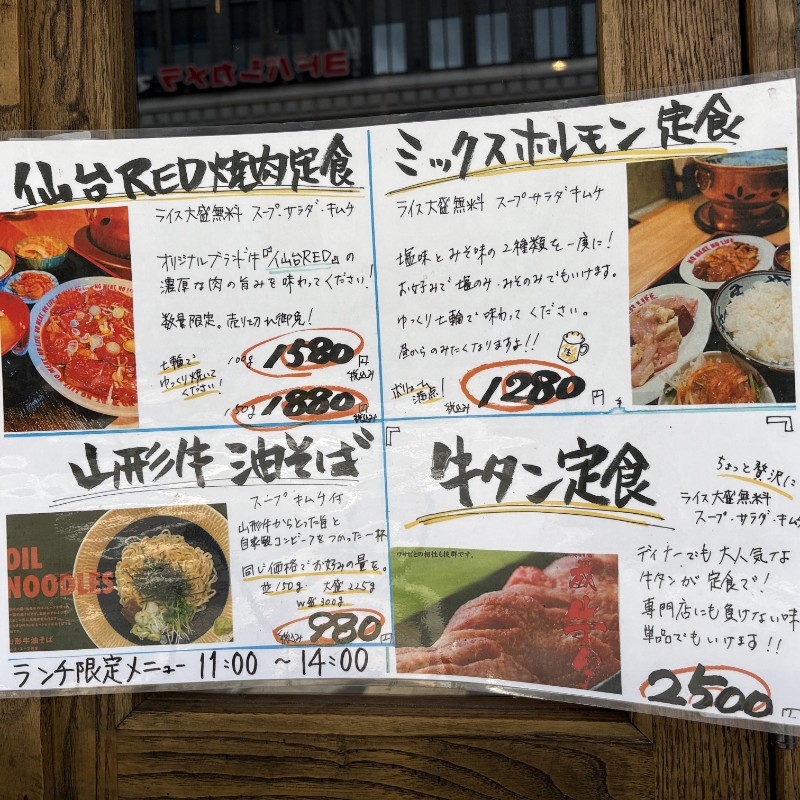 ヨドバシカメラ
仙台RED焼肉定食
ライス大盛無料 スープ・サラダ・キムチ
オリジナルブランド牛『仙台RED』の
濃厚な肉の旨みを味わってください!
数量限定。売り切れ御免!
七輪で
ゆっくり焼いて
ください!
100g 1580円
税込み
150g 1880円
税込み
ミックスホルモン定食
ライス大盛無料 スープ・サラダ・キムチ
塩味とみそ味の2種類を一度に!
お好みで塩のみ・みそのみでもいけます。
ゆっくり七輪で味わってください。
昼からのみたくなりますよ!!
ボリューム
満点!
税込み 1280円
NO MEAT, NO LIFE
山形牛 油そば
スープ キムチ付
山形牛からとった旨と
自家製コンビーフをつかった一杯
同じ価格でお好みの量を。
並150g 大盛225g
W盛300g
税込み 980円
OIL
NOODLES
山形牛油そば
ランチ限定メニュー 11:00 ~14:00
牛タン定食
ちょっと贅沢に
ライス大盛無料
スープ・サラダ・キムチ
ワサビとの相性も抜群です。
ディナーでも大人気な
牛タンが定食で!
専門店にも負けない味
単品でもいけます!!
2500円